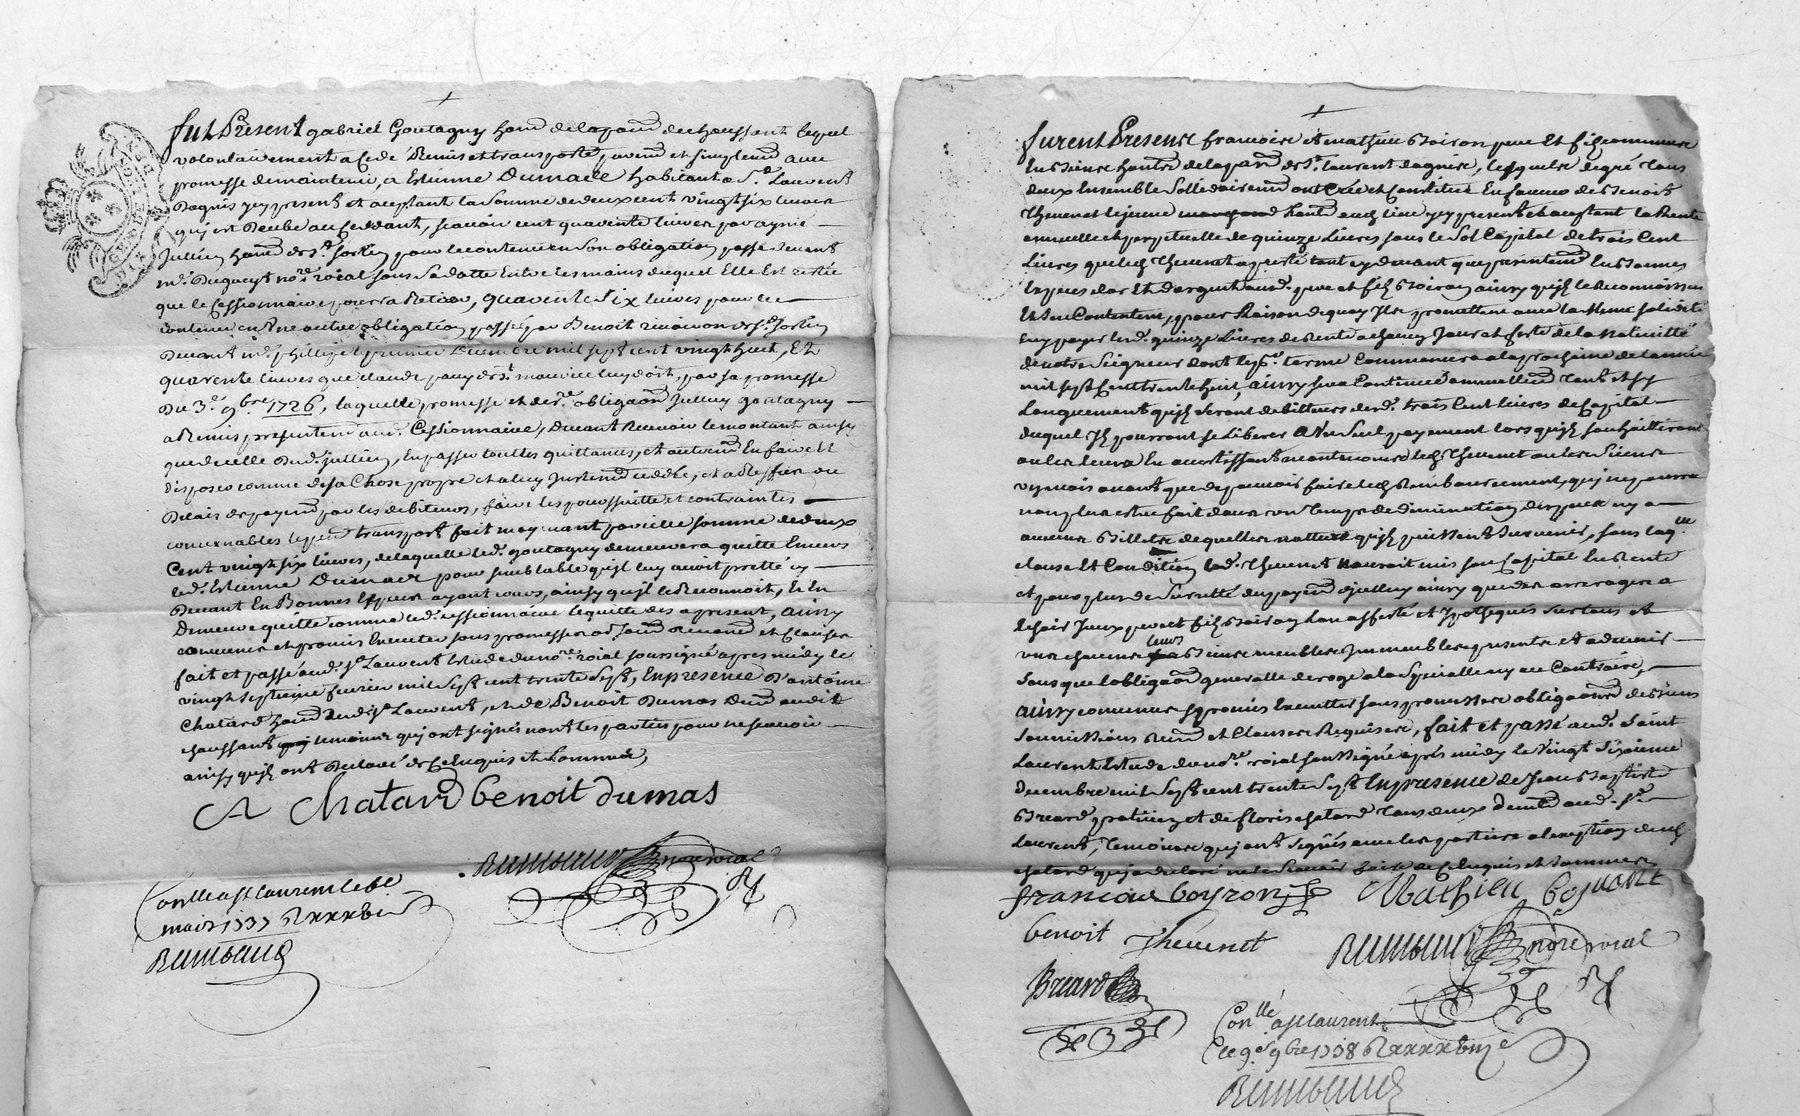 fut Présent gabriel Goutagny habnd de la parr de chaussant lequel
volontairement a cedé Remis et transporté, purem et simplem avec
promesse de maintenir, a Estienne Dumace habitant a St Laurent
Dagnis ycy present et acceptant la somme de deux cent vingt six livres
qui est Deube au Cedant, scavoir cent quarente livres par
Jullien hand de St Sorlin pour le contenu en Son obligation passé devant
me Duguey no.re roial sous Sa datte Entre les mains duquel Elle Est restée
que le Cessionnaire pourra Retirer, quarente Six livres pour le
contenu en Une autre obligation passé par Benoit de St Sorlin
Devant me le premier Decembre mil sept cent vingt huit, Et
quarente livres que claude de St maurice luy doit, par sa promesse
Du 3e 9bre 1726, laquelle promesse et de.re obligaon Jullien goutagny
a Remis presentem aud. Cessionnaire, Devant Recevoir le montant ainsy
que de celle Dud. jullien, En passer toutes quittances, et autrem En faire Et
disposer comme de sa Chose propre et a luy Justem Et a deffaut ou
Delais de payem par les debiteurs, faire les poursuitte et contraintes
convenables le pnt transport fait moyenant pareille somme de deux
Cent vingt six livres, de laquelle led. goutagny demeurera quitte Envers
led. Estienne Dumace pour semblable qu'il luy avoit pretté cy
Devant En Bonnes Especes ayant cours, ainsy qu'il le Reconnoit, Et En
Demeure quitte comme led. cessionnaire le quitte des a present, Ainsy
convenu et promis Executer sous promesses et Clauses
fait et passé aud. St Laurent Estude du no.re roial soussigné apres midy le
vingt septieme fevrier mil sept cent trente sept, En presence D'antoine
Chatard hand dud. St Laurent, et de Benoit Dumas Dem audit
chaussant temoins qui ont signés non les parties pour ne scavoir
ainsy qu'ils ont Declaré de ce Enquis et Sommés,
A Chatard benoit dumas
Rimbaud no.re roial
Con.lle a St Laurent le 6e
mars 1737
Rimbaud
furent Presens françois Et mathieu Boiron pere Et fils
hants de la par de St laurent dagnis, lesquels de gré tous
deux Ensemble Sollidairem ont Créé et Constitué En faveur de Benoit
Thevenet le jeune hant aud lieu ycy present et acceptant la Rente
annuelle et perpetuelle de quinze Livres sous le Sol Capital de trois Cent
Livres que led. Thevenet a presté tant cy devant que presentem En bonnes
Especes d'or Et d'argent aud. pere et fils Boiron ainsy qu'ils le Reconnoissent
Et S'en Contentent, pour Raison de quoy Ils promettent avec la Meme solidité
En payer led. quinze Livres de Rente a chacun Jour et feste de la Nativité
de notre Seigneur dont le pr. terme Commencera a la prochaine de lannée
mil sept Cent trente huit, Ainsy sera Continué annuellem tant Et sy
Longuement qu'ils Seront debitteurs desd. trois Cent livres de Capital
duquel Ils pourront se Liberer a Un Seul payement lors qu'ils souhaitteront
ou les leurs En avertissant led. Thevenet ou les Siens
un mois avant que de pouvoir faire led. Remboursement, qui ne pourra
non plus estre fait dans un temps de diminution d'especes ny
aucuns Billets de quelles nature qu'ils puissent Survenir, sans laq.lle
clause Et Condition led. Thevenet Nauroit mis son Capital En Rente
et pour plus de Surretté du payem d'jcelluy ainsy que des arrerages a
Echoir Iceux pere et fils Boiron ont affecté et Ypothequés Sur tous Et
uns chacuns leurs Biens meubles Immeubles presents Et advenir
Sans que l'obligaon generalle deroge a la Specialle ny au Contraire,
Ainsy convenu Et promis Executter sous promesses obligaons de biens
Soumissions Ren et Clauses Requises, fait et passé aud. Saint
Laurent Estude du no.re roial soussigné apres midy le Vingt Sixieme
decembre mil Sept cent trente Sept En presence de Jean Baptiste
Breard praticien et de floris chatard tous deux demts aud. St
Laurent, Temoins qui ont signés avec les parties a lexeption dud.
chatard qui a declaré ne le Scavoir faire de ce Enquis et sommés
françois boyron Mathieu boyront
benoit Thévenet
Rimbaud no.re roial
Breard
Con.lle a St Laurent
le 9e 9bre 1738
Rimbaud